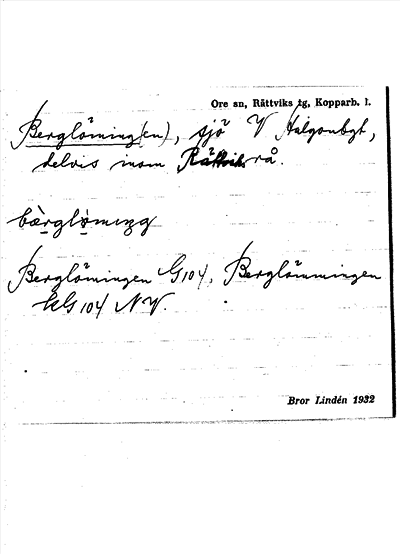 Ore sn, Rättviks tg, Kopparb. l.
Berglöming(en), sjö V Hälgonbgt,
delvis inom Rättviks rå.
bæ̀rglömıŋg
Berglömingen G104, Berglömmingen
KG 104 NV.
Bror Lindén 1932